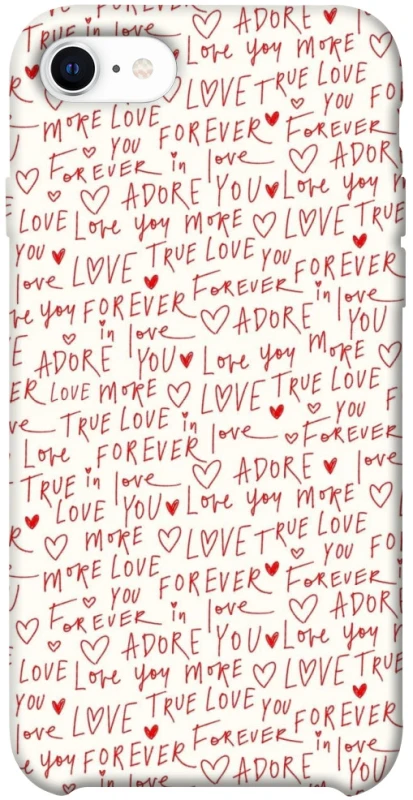 ADORE
TRUE in love Love you MORE
FOREVER LOVE TRUE LOVE
YOU FO
MORE LOVE FOREVER FOREVER
YOU
FOREVER in love ADOR
ADORE YOU Love you
LOVE Love you MORE LOVE TRUE
YOU LOVE TRUE LOVE YOU FOREVER
love FOREVER in love
you FOREVER ADORE YOU
in love
ADORE YOU Love you MORE
ER LOVE MORE LOVE TRUE LOVE
TRUE LOVE in love YOU
FOREVER
Love FOREVER ADORE love
TRUE in love
LOVE YOU Love you MORE
MORE LOVE TRUE LOVE
YOU FO
MORE LOVE FOREVER FOREVER
YOU
FOREVER in love ADOR
ADORE YOU Love you
LOVE Love you MORE LOVE TRUE
YOU LOVE TRUE LOVE YOU FOREVER
love FOREVER in love
you FOREVER ADORE YOU
in love